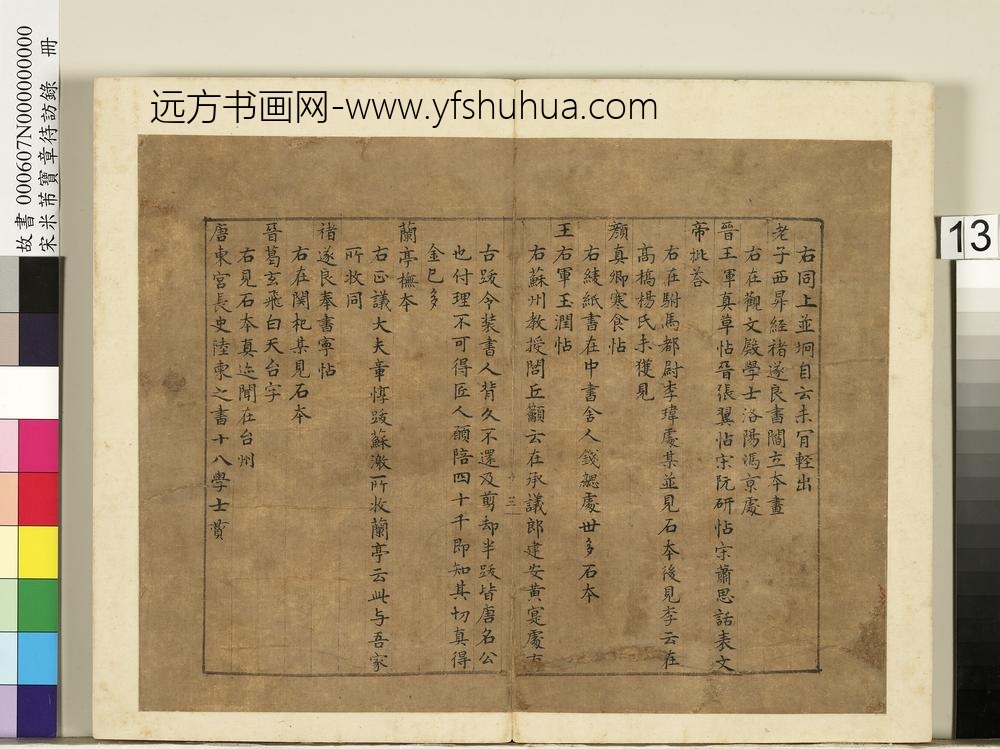 远方书画网-www.yfshuhua.com
故書 000607N000000000
宋米芾寶章待訪錄　冊
13
右同上並坰自云未肎輕出
老子西昇經褚遂良書閻立本畫
右在觀文殿學士洛陽馮京處
晉王軍真草帖晉張翼帖宋阮研帖宋蕭思話表文
帝批荅
右在駙馬都尉李瑋處某並見石本後見李云在
髙橋楊氏未獲見
顏真卿寒食帖
右綾紙書在中書舍人錢勰處世多石本
王右軍玉潤帖
右蘇州教授閭丘籲云在承議郎建安黃寔處
三
古跋令装書人背久不還及剪却半跋皆唐名公
也付理不可得匠人願陪四十千即知其切真得
金已多
蘭亭橅本
右正議大夫章惇跋蘇澈所收蘭亭云此与吾家
所收同
褚遂良奉書寧帖
右在関杞某見石本
晉葛玄飛白天台字
右見石本真迹聞在台州
唐東宮長史陸柬之書十八學士贊